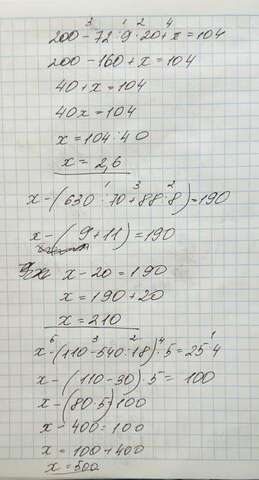 3 1 2 4
200 - 72 : 9 · 20 + x = 104
200 - 160 + x = 104
40 + x = 104
40x = 104
x = 104 : 40
x = 2,6
1 3 2
x - (630 : 70 + 88 : 8) = 190
x - ( 9 + 11) = 190
x - 20 = 190
x = 190 + 20
x = 210
6 3 2 4 1
x - (110 - 540 : 18) · 5 = 25 · 4
x - (110 - 30) · 5 = 100
x - (80 · 5) 100
x - 400 = 100
x = 100 + 400
x = 500